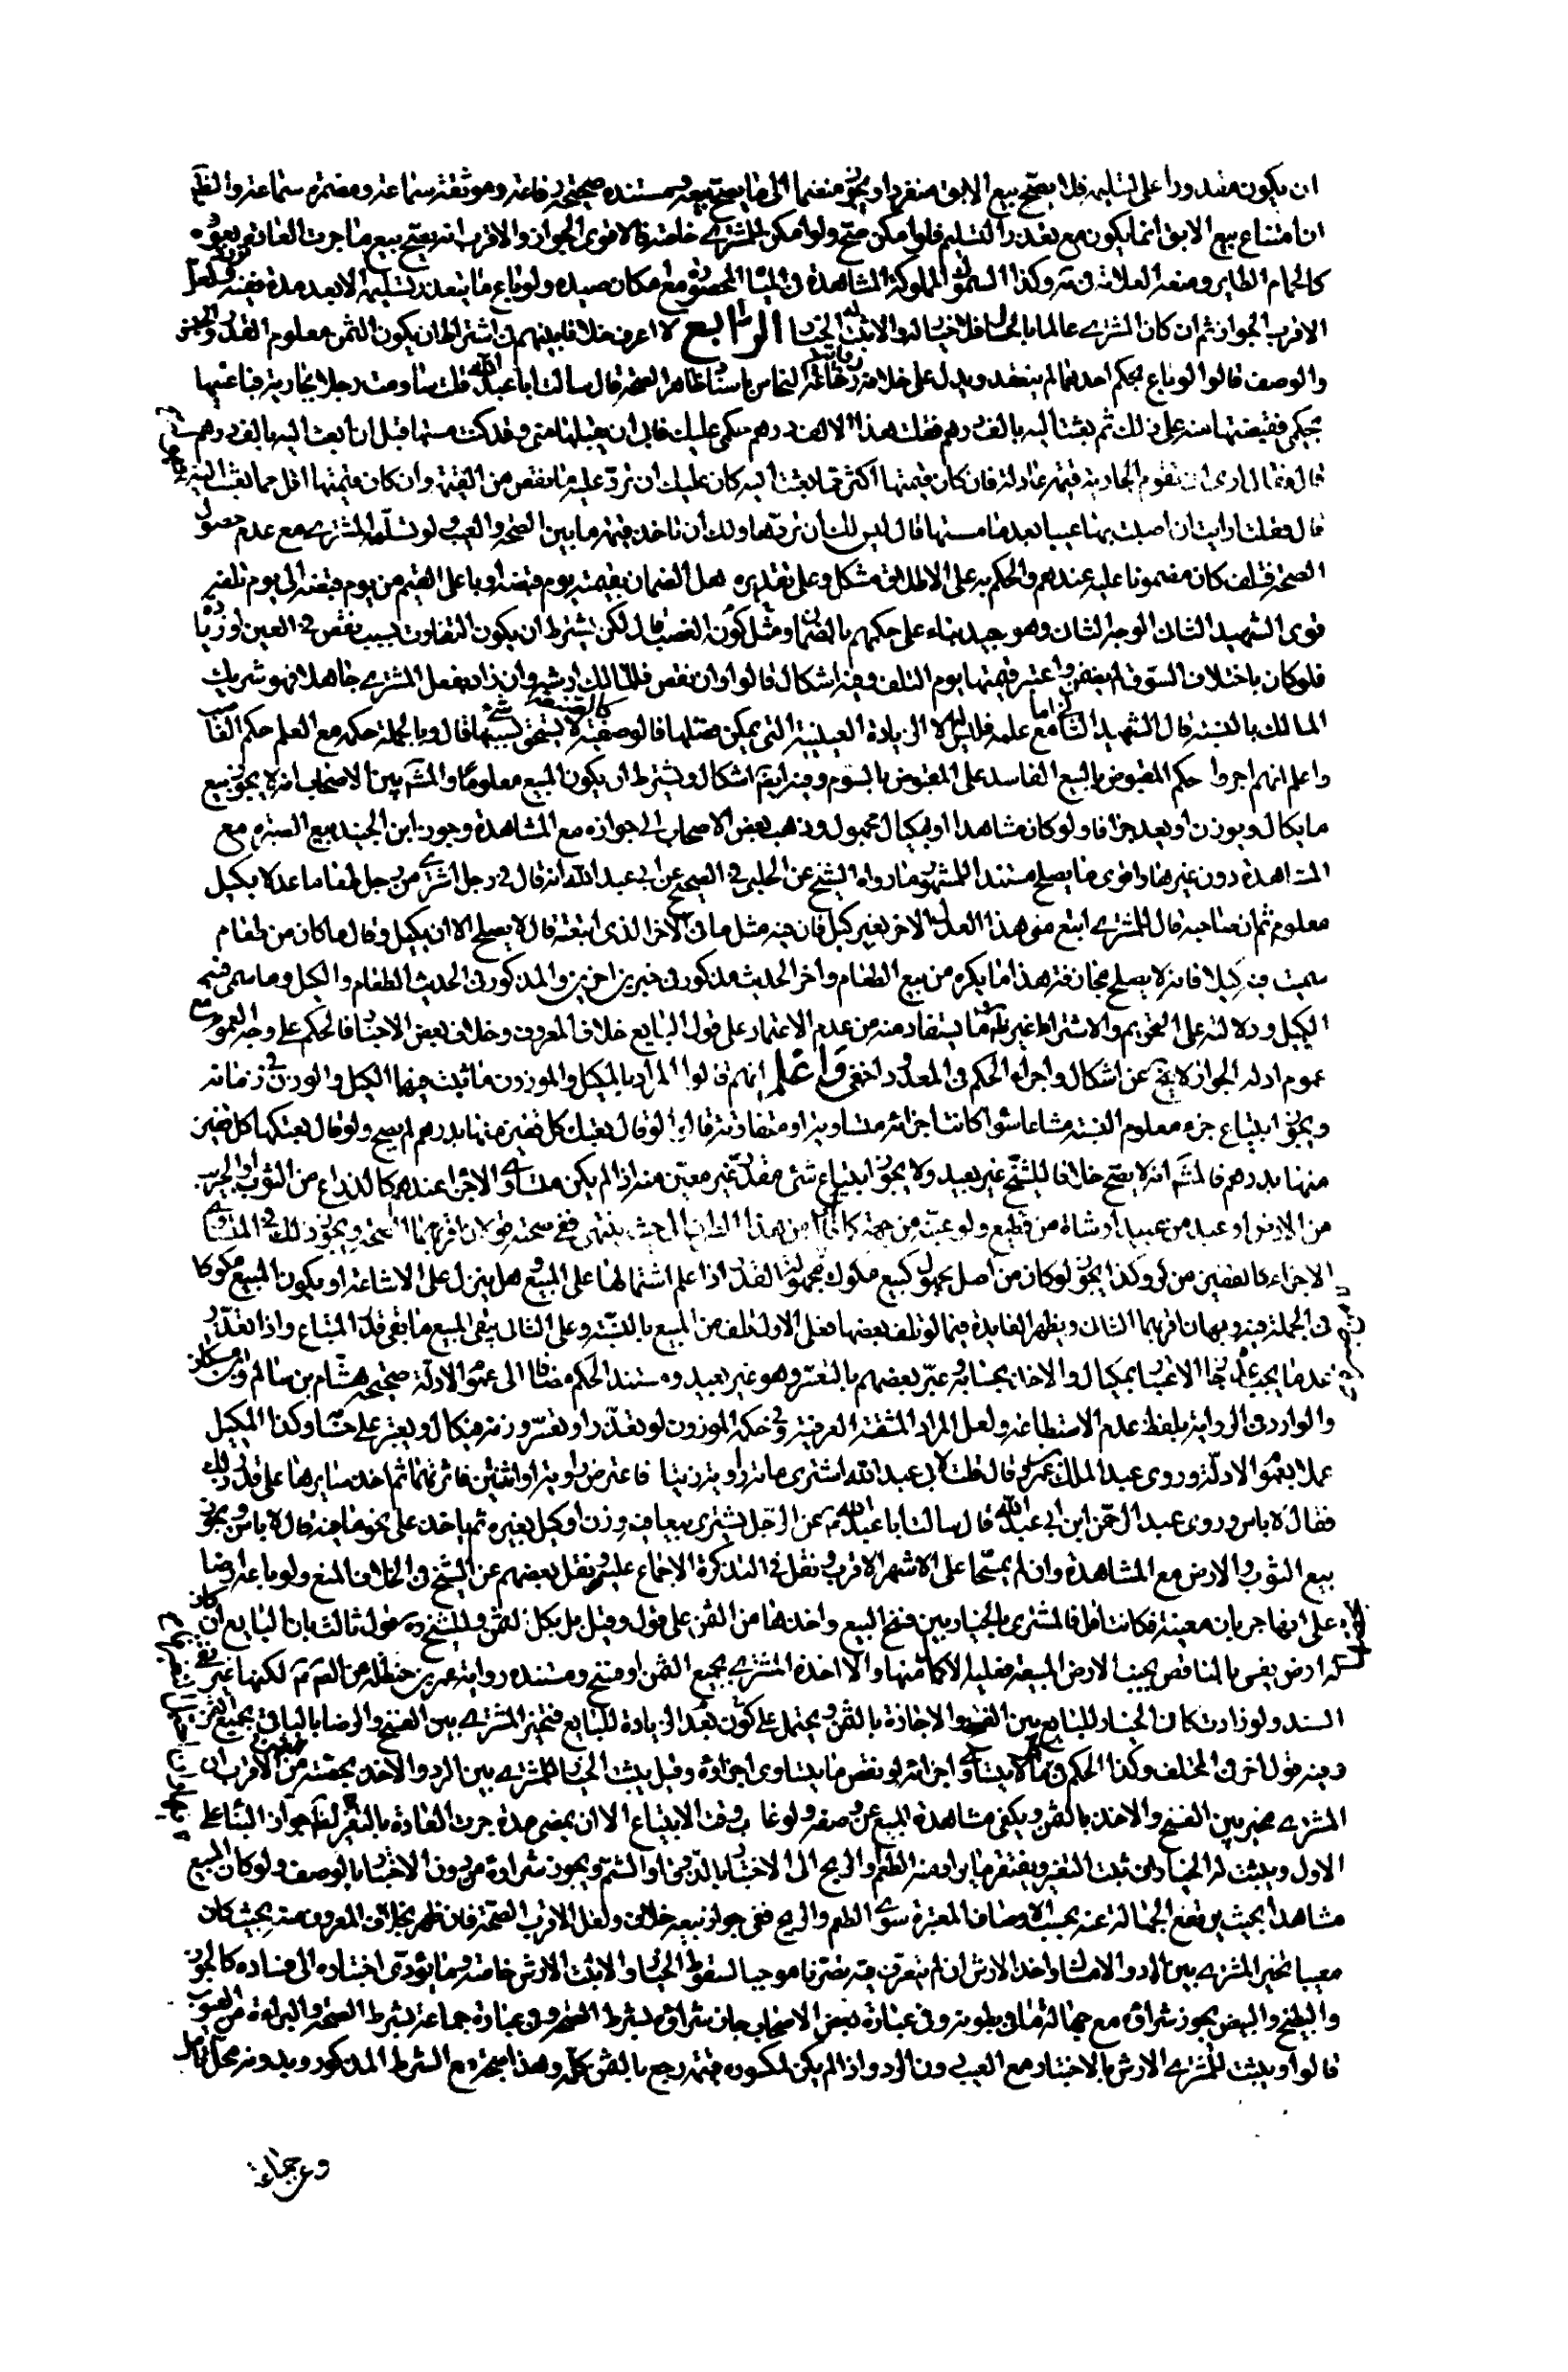 ان يكون مقدورا على تسليمه فلا يصح بيع الابق منفردا ويجوز منضما الى ما يصح بيعه ومستنده صحيحة رفاعة وموثقة سماعة ومضمرة سماعة والظاهر
ان امتناع بيع الابق انما يكون مع تعذر التسليم فلو امكن صح ولو امكن للمشترى خاصة فالاقوى الجواز والاقرب انه يصح بيع ما جرت العادة بعوده
كالحمام الطاير ومنعه العلامة فى ية وكذا السموك المملوكة المشاهدة فى المياه المحصورة مع امكان صيده ولو باع ما يتعذر تسليمه الا بعد مدة ففيه قولان ولعل
الاقرب الجواز ثم ان كان المشترى عالما بالحال فلا خيار له والا ثبت له الخيار الرابع لا اعرف خلافا بينهم فى اشتراط ان يكون الثمن معلوم القدر والجنس
والوصف قالوا لو باع بحكم احدهما لم ينعقد ويدل على خلافه رواية رفاعة النخاس باسناد ظاهر الصحة قال سالت ابا عبد الله قلت ساومت رجلا بجارية فباعنيها
بحكمى فقبضتها منه على ذلك ثم بعثت اليه بالف درهم فقلت هذا الالف درهم حكمى عليك فابى ان يقبلها منى وقد كنت مسستها قبل ان ابعث اليه بالف درهم
قال فقال ارى ان تقوم الجارية قيمة عادلة فان كان قيمتها اكثر مما بعثت اليه كان عليك ان ترد عليه ما نقص من القيمة وان كان قيمتها اقل مما بعثت اليه
قال فقلت ارايت ان اصبت بها عيبا بعد ما مسستها قال ليس لك ان تردها ولك ان تاخذ قيمة ما بين الصحة والعيب ولو تسلمه المشترى مع عدم حصول
الصحة فتلف كان مضمونا عليه عندهم والحكم به على الاطلاق مشكل وعلى تقديره هل الضمان بقيمته يوم قبضه او باعلى القيم من يوم قبضه الى يوم تلفه
قوى الشهيد الثانى الوجه الثانى وهو جيد بناء على حكمهم بالضمان ومثل كونه الغصب قال لكن يشترط ان يكون التفاوت بسبب نقص فى العين او زيادة
فلو كان باختلاف السوق لم يضمن واعتبر قيمتها يوم التلف وفيه اشكال قالوا وان نقص فللمالك ارشه وان زاد بفعل المشترى جاهلا فهو شريك
المالك بالنسبة قال الشهيد الثانى اما مع علمه فليس له الا الزيادة العينية التى يمكن فصلها فالوصفية كالصنعة لا يستحق بسببها شىء قال وبالجملة حكمه مع العلم حكم الغاصب
واعلم انهم اجروا حكم المقبوض بالبيع الفاسد على المقبوض بالسوم وفيه ايضا اشكال ويشترط ان يكون المبيع معلوما والمشهور بين الاصحاب انه لا يجوز بيع
ما يكال او يوزن او يعد جزافا ولو كان مشاهدا او بمكيال مجهول وذهب بعض الاصحاب الى جوازه مع المشاهدة وجوز ابن الجنيد بيع الصبرة مع
المشاهدة دون غيرها واقوى ما يصلح مستندا للمشهور ما رواه الشيخ عن الحلبى فى الصحيح عن ابى عبد الله انه قال فى رجل اشترى من رجل طعاما عدلا بكيل
معلوم ثم ان صاحبه قال للمشترى ابتع منى هذا العدل الاخر بغير كيل فان فيه مثل ما فى الاخر الذى ابتعته قال لا يصلح الا ان يكيل وقال ما كان من طعام
سميت فيه كيلا فانه لا يصلح مجازفة هذا ما يكره من بيع الطعام واخر الحديث مذكور فى خبرين اخرين والمذكور فى الحديث الطعام والكيل وما سمى فيه
الكيل ودلالته على التحريم والاشتراط غير ظاهرة وما يستفاد منه من عدم الاعتماد على قول البايع خلاف المعروف وخلاف بعض الاخبار فالحكم على وجه العموم مع
عموم ادلة الجواز لا يخ عن اشكال واجراء الحكم فى المعدود اخفى واعلم انهم قالوا المراد بالمكيل والموزون ما ثبت فيهما الكيل والوزن فى زمانه
ويجوز ابتياع جزء معلوم النسبة مشاعا سواء كانت اجزائه متساوية او متفاوتة قالوا لو قال بعتك كل قفيز منها بدرهم لم يصح ولو قال بعتكها كل قفيز
منها بدرهم فالمشهور انه لا يصح خلافا للشيخ غير بعيد ولا يجوز ابتياع شىء مقدر غير معين منه اذا لم يكن متساوى الاجزاء عندهم كالذراع من الثوب او الجريب
من الارض او عبد من عبيد او شاة من قطيع ولو عينه من جهة كان من هذا الطرف الى حيث ينتهى ففى صحته قولان اقربهما الصحة ويجوز ذلك فى المتساوى
الاجزاء كالقفيز من كر وكذا يجوز لو كان من اصل مجهول كبيع مكوك من مجهولة القدر اذا علم اشتمالها على المبيع وهل ينزل على الاشاعة او يكون المبيع مكوكا
فى الجملة فيه وجهان اقربهما الثانى ويظهر الفايدة فيما لو تلف بعضها فعلى الاول تلف من المبيع بالنسبة وعلى الثانى يبقى المبيع ما بقى قدر المبتاع واذا تعذر
عد ما يجب عده جاز الاعتبار بمكيال والاخذ بحسابه وعبر بعضهم بالتعسر وهو غير بعيد ومستند الحكم مضافا الى عموم الادلة صحيحة هشام بن سالم وابن مسكان
والوارد فى الرواية بلفظ عدم الاستطاعة ولعل المراد المشقة العرفية وفى حكمه الموزون لو تعذر او تعسر وزنه فيكال ويعتبر على حسابه وكذا المكيل
عملا بعموم الادلة وروى عبد الملك بن عمرو قال قلت لابى عبد الله اشترى مائة راوية زيتا فاعترض راوية او اثنتين فاتزنهما ثم اخذ سايرها على قدر ذلك
فقال لا باس وروى عبد الرحمن ابن ابى عبد الله قال سالت ابا عبد الله عن الرجل يشترى بيعا فيه وزن او كيل بغيره ثم ياخذ على نحو ما فيه قال لا باس ويجوز
بيع الثوب والارض مع المشاهدة وان لم يمسحا على الاشهر الاقرب ونقل فى التذكرة الاجماع عليه ونقل بعضهم عن الشيخ فى الخلاف المنع ولو باعه ارضا
على انها جربان معينة فكانت اقل فالمشترى بالخيار بين فسخ البيع واخذها من الثمن على قول وقيل بل بكل الثمن وللشيخ ره قول ثالث بان البايع ان كان
له ارض يفى بالناقص بجنب الارض المبيعة فعليه الاكمال منها والا اخذه المشترى بجميع الثمن او فسخ ومستنده رواية عمر بن حنظلة من الصم لكنها غير نقى
السند ولو زادت كان الخيار للبايع بين الفسخ والاجازة بالثمن ويحتمل على كون هذا الزيادة للبايع فتخير المشترى بين الفسخ والرضا بالباقى بجميع الثمن
وفيه قول اخر فى المختلف وكذا الحكم فى ما لا يتساوى اجزائه ولو نقص ما يتساوى اجزاؤه وقيل يثبت الخيار للمشترى بين الرد والاخذ بحصته من الثمن والاقرب ان
المشترى مخير بين الفسخ والاخذ بالثمن ويكفى مشاهدة المبيع عن وصفه ولو غاب وقت الابتياع الا ان يمضى مدة جرت العادة بالتغير لظهور جواز البناء على
الاول ويثبت له الخيار ان ثبت التغير ويفتقر ما يراد منه الطعم والريح الى الاختبار بالذوق او الشم ويجوز شراؤه من دون الاختبار بالوصف ولو كان المبيع
مشاهدا بحيث يرتفع الجهالة عنه بحسب الاوصاف المعتبرة سوى الطعم والريح ففى جواز بيعه خلاف ولعل الاقرب الصحة فان ظهر بخلاف المعروف منه بحيث كان
معيبا تخير المشترى بين الرد والامساك واخذ الارش ان لم يتصرف فيه تصرفا موجبا لسقوط الخيار والا ثبت الارش خاصة وما يؤدى اختباره الى فساده كالجوز
والبطيخ والبيض يجوز شراؤه مع جهالة ما فى بطونه وفى عبارة بعض الاصحاب جاز شراؤه بشرط الصحة وفى عبارة جماعة بشرط الصحة والبراءة من العيوب
قالوا ويثبت للمشترى الارش بالاختبار مع العيب دون الرد واذا لم يكن لمكسوره قيمة رجع بالثمن كله وهذا متجه مع الشرط المذكور وبدونه محل تامل